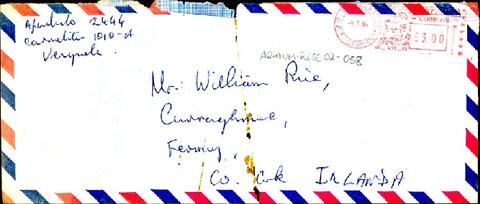 Apartado 2444
Carmelitas 1010-A
Venezuela.
CORREOS
3.00
ADMINM-RICE 02-058
Mr. William Rice,
Curraghmore,
Fermoy,
Co. Cork IRLANDA